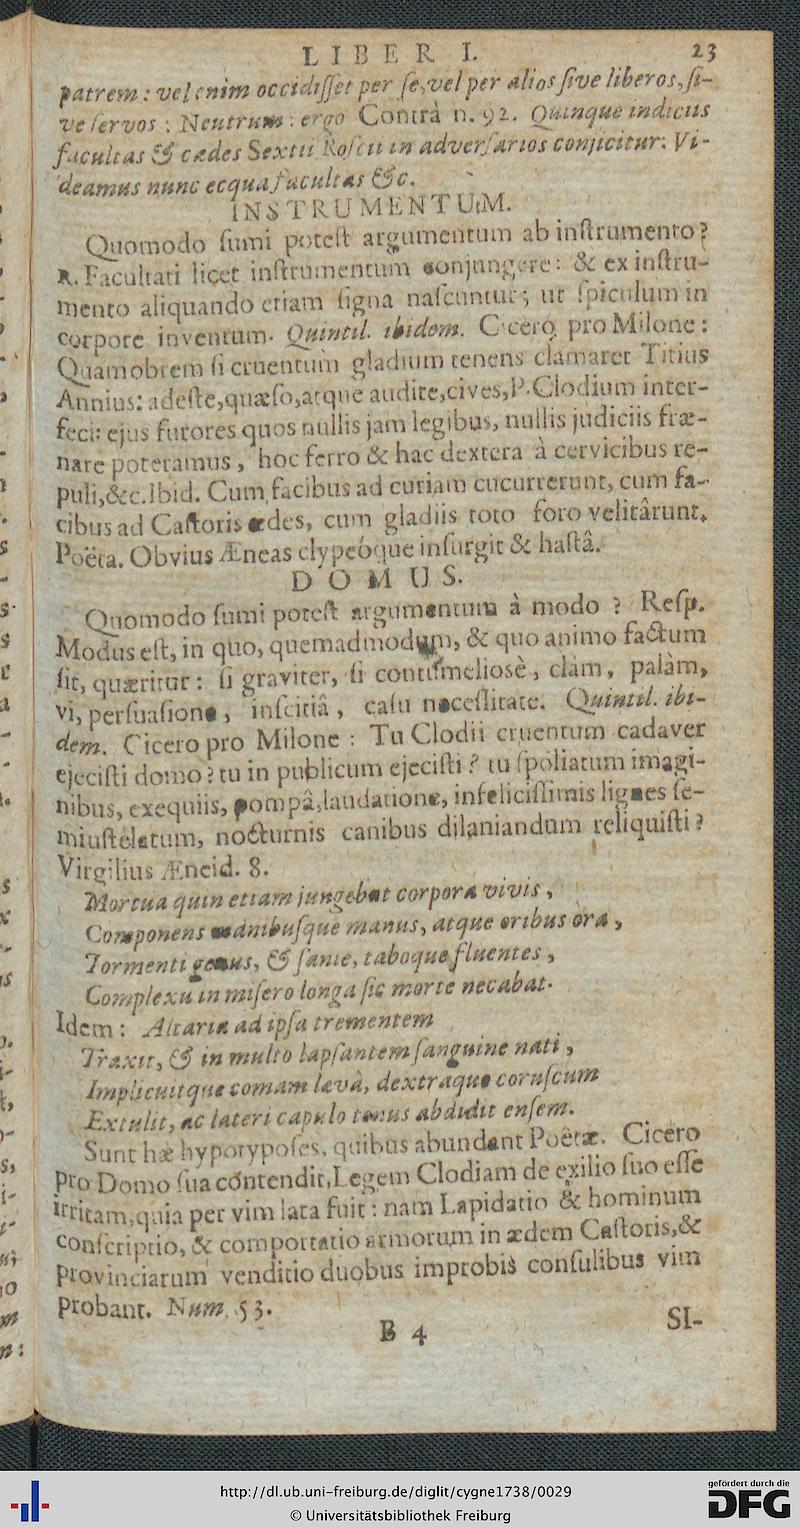 LIBER I. 23
patrem : vel enim occidiſſet per ſe, vel per alios ſive liberos, ſi-
ve ſervos : Neutrum : ergo Contrà n. 92. Quinque indiciis
facultas & cædes Sextii Roſcii in adverſarios conjicitur: Vi-
deamus nunc ecqua facultas &c.
INSTRUMENTUM.
Quomodo ſumi poteſt argumentum ab inſtrumento?
R. Facultati liçet inſtrumentum conjungere: & ex inſtru-
mento aliquando etiam ſigna naſcuntur; ut ſpiculum in
corpore inventum. Quintil. ibidem. Cicero pro Milone:
Quamobrem ſi cruentum gladium tenens clamaret Titius
Annius: adeſte, quæſo, atque audite, cives, P. Clodium inter-
feci: ejus furores quos nullis jam legibus, nullis judiciis fræ-
nare poteramus, hoc ferro & hac dextera à cervicibus re-
puli, &c. Ibid. Cum facibus ad curiam cucurrerunt, cum fa-
cibus ad Caſtoris ædes, cum gladiis toto foro velitârunt.
Poëta. Obvius Æneas clypeóque inſurgit & haſtâ.
DOMUS.
Quomodo ſumi poteſt argumentum à modo ? Reſp.
Modus eſt, in quo, quemadmodum, & quo animo factum
ſit, quæritur: ſi graviter, ſi contumeliosè, clàm, palàm,
vi, perſuaſione, inſcitiâ, caſu neceſſitate. Quintil. ibi-
dem. Cicero pro Milone : Tu Clodii cruentum cadaver
ejeciſti domo? tu in publicum ejeciſti ? tu ſpoliatum imagi-
nibus, exequiis, pompâ, laudatione, infeliciſſimis lignes ſe-
miuſtelatum, nocturnis canibus dilaniandum reliquiſti?
Virgilius Æneid. 8.
Mortua quin etiam jungebat corpora vivis,
Componens manibuſque manus, atque oribus òra,
Tormenti genus, & ſanie, taboque fluentes,
Complexu in miſero longa ſic morte necabat.
Idem: Altaria ad ipſa trementem
Traxit, & in multo lapſantem ſanguine nati,
Implicuitque comam lævâ, dextraque coruſcum
Extulit, ac lateri capulo tenus abdidit enſem.
Sunt hæ hypotypoſes, quibus abundant Poëtæ. Cicero
pro Domo ſua contendit, Legem Clodiam de exilio ſuo eſſe
irritam, quia per vim lata fuit: nam Lapidatio & hominum
conſcriptio, & comportatio armorum in ædem Caſtoris, &
provinciarum venditio duobus improbis conſulibus vim
probant. Num. 53.
B 4 SI-
http://dl.ub.uni-freiburg.de/diglit/cygne1738/0029
© Universitätsbibliothek Freiburg
gefördert durch die
DFG